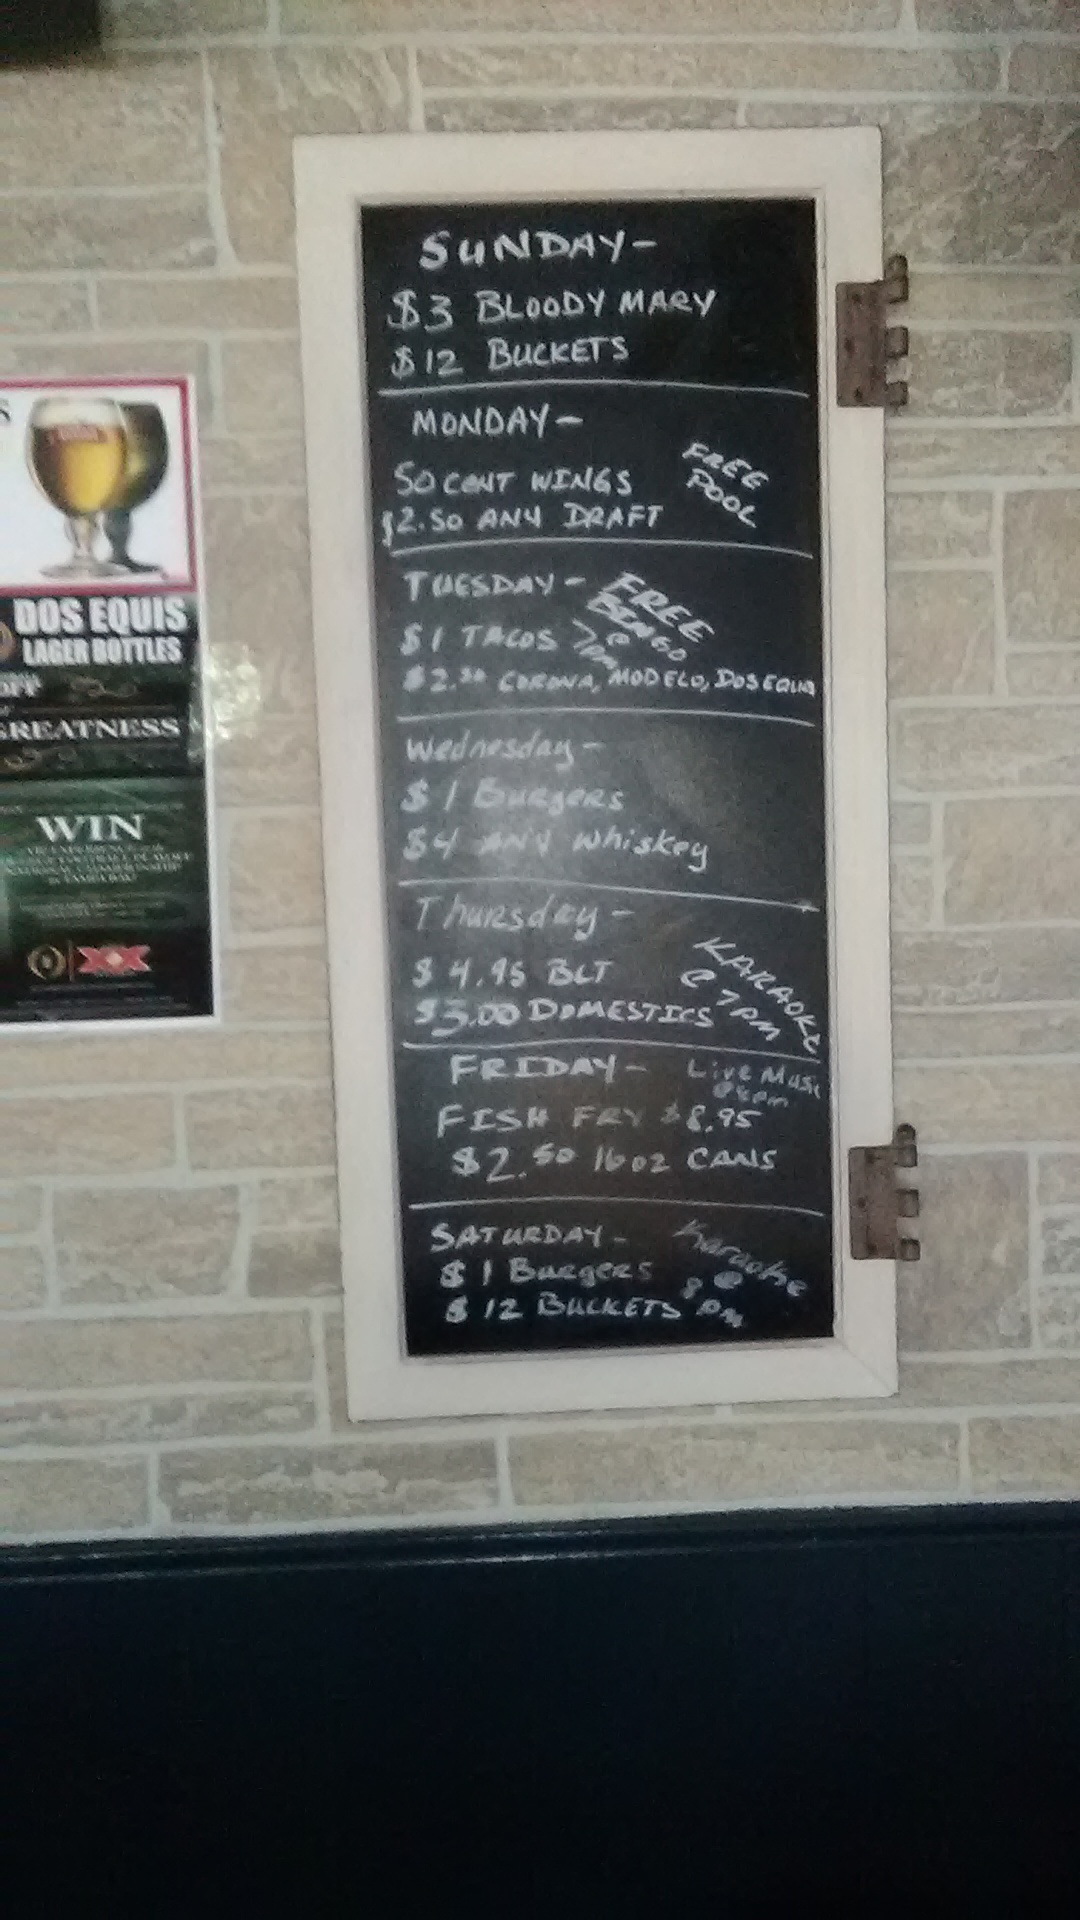 SUNDAY-
$3 BLOODY MARY
$12 BUCKETS
MONDAY-
50 CENT WINGS
$2.50 ANY DRAFT
FREE
POOL
TUESDAY-
FREE
BINGO
@
7PM
$1 TACOS
$2.50 CORONA, MODELO, DOS EQUIS
Wednesday-
$1 Burgers
$4 ANY Whiskey
Thursday-
$4.95 BLT
$3.00 DOMESTICS
KARAOKE
@ 7PM
FRIDAY-
Live Music
FISH FRY $8.95
$2.50 16oz CANS
SATURDAY-
Karaoke
@
8 pm
$1 Burgers
$12 BUCKETS
S
DOS EQUIS
LAGER BOTTLES
OFF
GREATNESS
WIN
XX